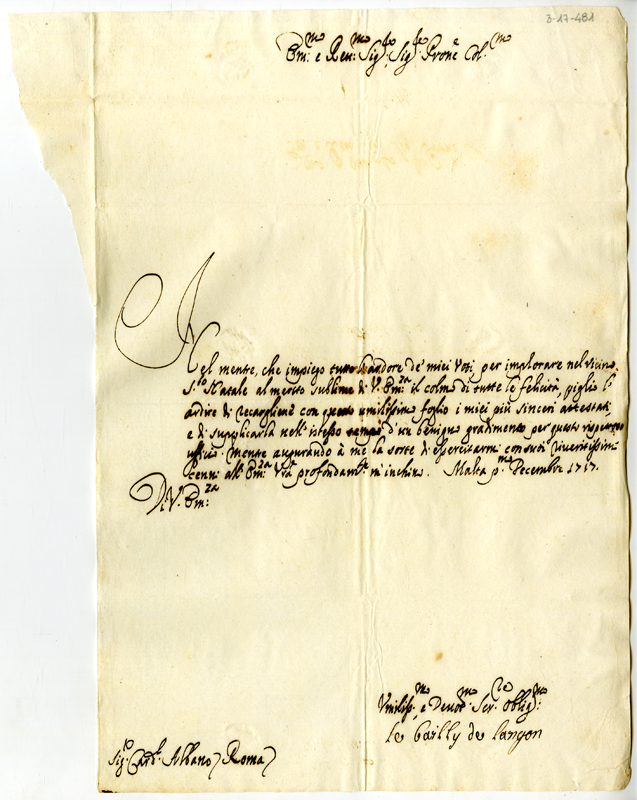 3-17-481
Em:mo e Reu:mo Sig:re Sig:re Prone Col:mo
Nel mentre, che impiego tutto l'ardore de' miei Voti, per implorare nel vicino
S:to Natale al merito sublime di V. Em:za il colmo di tutte le felicità, piglio l'
ardire di recarglieue con questo umilissimo foglio i miei più sinceri attestati,
e di supplicarla nell'istesso tempo d'un benigno gradimento per questo rispettoso
ufficio. Mentre augurando à me la sorte di esercitarmi con suoi riueritissimi
cenni all'Em:za Vra profondam:te m'inchino. Malta p:mo Decembre 1717.
Di V. Em:za
Vmiliss:mo e Deuot:mo Ser:re Oblig:mo
le bailly de Langon
Sig:r Card:l Albano Roma